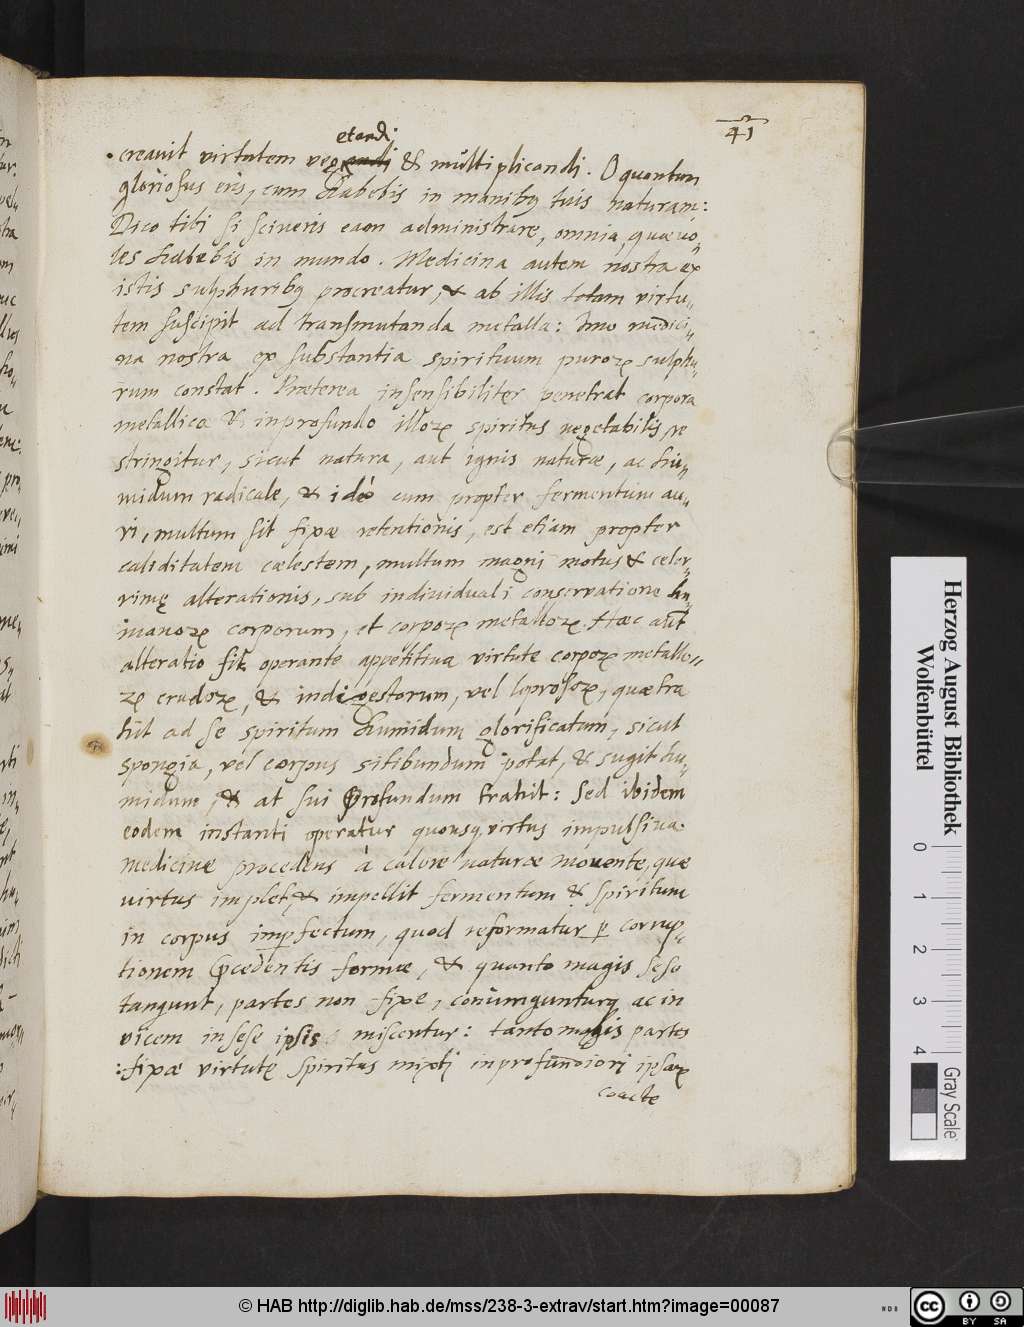 41
etandi
creavit virtutem vegandi & multiplicandi. O quantum
gloriosus eris, cum habebis in manibꝫ tuis naturam:
Dico tibi si sciveris eam administrare, omnia, quæ vo„
les habebis in mundo. Medicina autem nostra ex
istis sulphuribꝫ procreatur, & ab illis totam virtu„
tem suscipit ad transmutanda metalla: Imo medici„
na nostra ex substantia spirituum puroꝝ sulphu„
rum constat. Præterea insensibiliter penetrat corpora
metallica & in profundo illoꝝ spiritus vegetabilis re
stringitur, sicut natura, aut ignis naturæ, ac hu„
midum radicale, & ideò cum propter fermentum au„
ri, multum sit fixæ retentionis, est etiam propter
caliditatem cælestem, multum magni motus & celer„
rimę alterationis, sub individuali conservatione hu„
manoꝝ corporum, et corpoꝝ metalloꝝ. Hæc aut̃
alteratio fit operante appetitiva virtute corpoꝝ metallo„
ꝝ crudoꝝ, & indigestorum, vel leprosoꝝ, quæ tra
hūt ad se spiritum humidum glorificatum, sicut
spongia, vel corpus sitibundum potat, & sugit hu„
midum, & at sui ꝓfundum trahit: Sed ibidem
eodem instanti operatur quousqꝫ virtus impulsiva
medicinæ procedens à calore naturæ movente, quæ
virtus implet & impellit fermentum & spiritum
in corpus imꝑfectum, quod reformatur ꝑ corrup„
tionem ꝓcedentis formæ, & quanto magis sese
tangunt, partes non fixæ, coniunguntur, ac in
vicem in sese ipsis miscentur: tanto magis partes
fixæ virtute spiritus mixti in profundiori ipsaꝝ
coacte
Herzog August Bibliothek
Wolfenbüttel
0 1 2 3 4
Gray Scale
© HAB http://diglib.hab.de/mss/238-3-extrav/start.htm?image=00087
cc BY SA